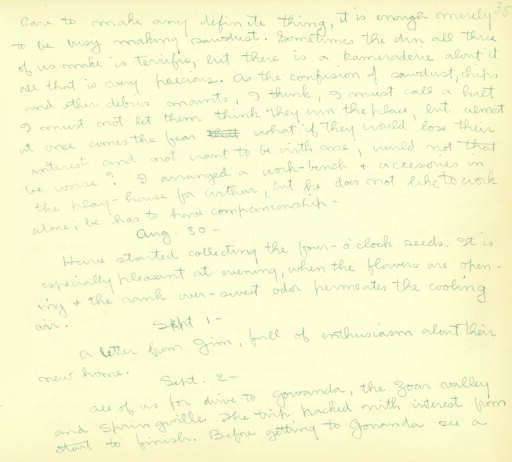 35
care to make any definite thing, it is enough merely
to be busy making sawdust. Sometimes the din all three
of us make is terrific, but there is a kameraderie about it
all that is very precious. As the confusion of sawdust, chips
and other debris mounts, I think, I must call a halt
I must not let them think they run the place, but almost
at once comes the fear what if they would lose their
interest and not want to be with me, would not that
be worse? I arranged a work-bench + accessories in
the play-house for Arthur, but he does not like to work
alone, he has to have companionship -
Aug. 30 -
Have started collecting the four-o'clock seeds. It is
especially pleasant at evening, when the flowers are open-
ing + the rank over-sweet odor permeates the cooling
air.
Sept 1 -
A letter from Jim, full of enthusiasm about their
new home.
Sept. 2 -
All of us for drive to Gowanda, the Zoar valley
and Springville. The trip packed with interest from
start to finish. Before getting to Gowanda see a